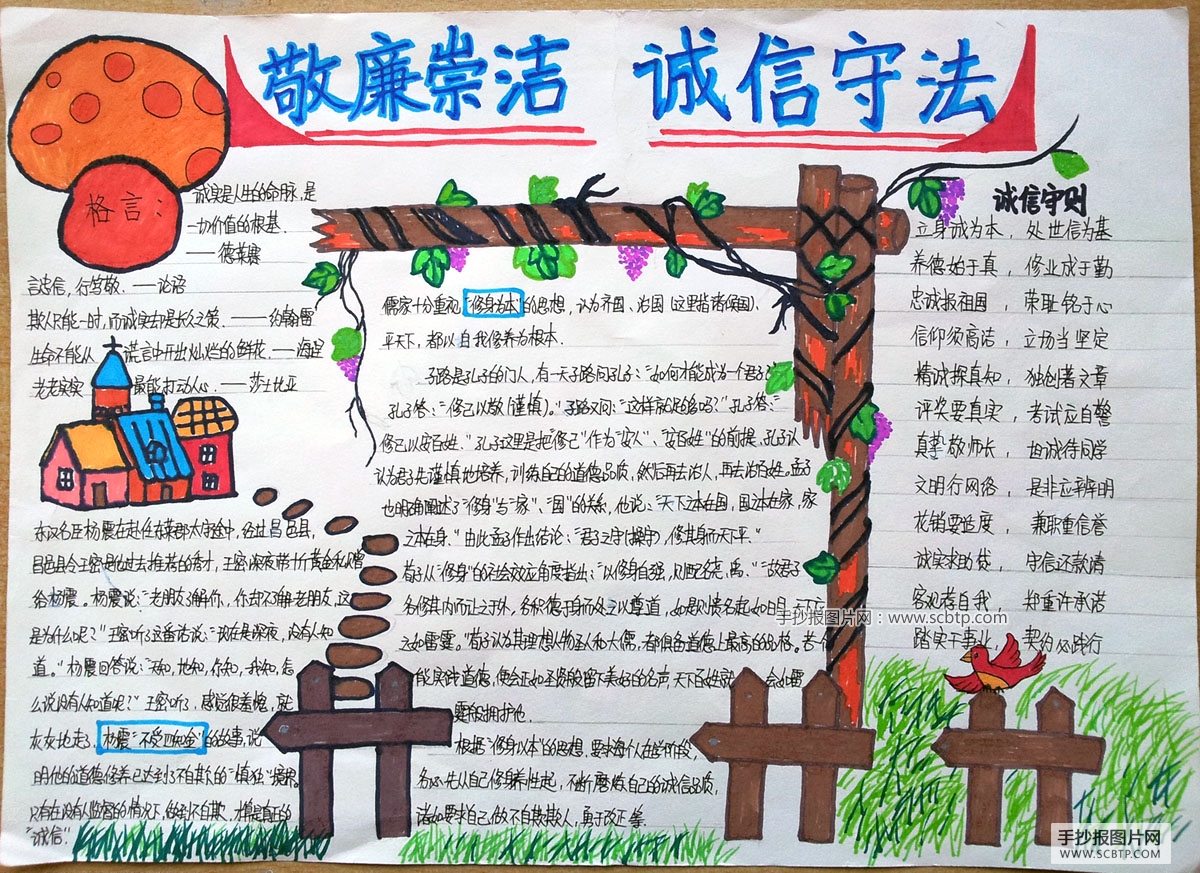 敬廉崇洁 诚信守法
格言：
诚实是人生的命脉，是
一切价值的根基．
——德莱赛
言忠信，行笃敬．——论语
欺人只能一时，而诚实却是长久之策．——约翰雷
生命不能从 谎言中开出灿烂的鲜花．——海涅
老老实实 最能打动人心．——莎士比亚
东汉名臣杨震在赴任东莱郡太守途中，经过昌邑县，
昌邑县令王密是他过去推荐的秀才，王密深夜带十斤黄金私赠
给杨震。杨震说："老朋友了解你，你却不了解老朋友，这
是为什么呢？"王密听了这番话说："现在是深夜，没有人知
道。"杨震回答说："天知，地知，你知，我知，怎
么说没有人知道呢？"王密听了，感觉很羞愧，就
灰灰地走，杨震"不受四知金"的故事，说
明他的道德修养已达到不自欺的"慎独"境界。
只有在没有人监督的情况下，做到不自欺，才算是真正的
"诚信"．
儒家十分重视"修身为本"的思想，认为齐国、治国（这里指诸侯国）、
平天下，都以自我修养为根本．
子路是孔子的门人，有一天子路问孔子："如何才能成为一个君子？"
孔子答："修己以敬（谨慎）。"子路又问："这样就足够吗？"孔子答："
修己以安百姓．"孔子这里是把"修己"作为"安人"、"安百姓"的前提．孔子认
认为君子先谨慎地培养、训练自己的道德品质，然后再去治人，再去治百姓。孟子
也明确阐述了"修身"与"家"、"国"的关系，他说："天下之本在国，国之本在家，家
之本在身．"由此孟子作出结论："君子之守（操守），修其身而天下平。"
荀子从"修身"的社会效应角度指出："以修身自强，则配尧、禹．""故君子
务修其内而让之于外，务积德于身而处之以尊道，如是则贵名起如日月，天下应
之如雷霆．"荀子认为其理想人物圣人和大儒，都俱备道德上最高的品格。若
能实践道德，便会正如圣贤般留下美好的名声，天下百姓就 会如雷
霆般拥护他．
根据"修身以本"的思想．要求每个人在学阶段，
务必先从自己修身养性起，不断磨炼自己的诚信品质，
诸如要求自己做不自欺欺人，勇于改正等．
诚信守则
立身诚为本，处世信为基
养德始于真，修业成于勤
忠诚报祖国，荣耻铭于心
信仰须高洁，立场当坚定
精诚探真知，独创者文章
评奖要真实，考试应自警
真挚敬师长，由诚待同学
文明行网络，是非应辨明
花销要适度，兼职重信誉
诚实求助贷，守信还款清
客观看自我，郑重许承诺
踏实干事业，契约必践行
手抄报图片网：www.scbtp.com
手抄报图片网
WWW.SCBTP.COM